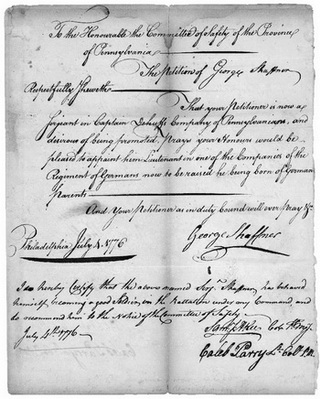 To the Honourable the Committee of Safety of the Province
of Pennsylvania
The Petition of George Shaffner
Respectfully Sheweth
That your Petitioner is now a
Serjeant in Captain Company of Pennsylvanians, and
desirous of being promoted, Prays your Honours would be
pleased to appoint him Lieutenant in one of the Companies of the
Regiment of Germans now to be raised he being born of German
Parents
And Your Petitioner as in duty bound will ever Pray &c
Philadelphia July 4. 1776
George Shaffner
I do hereby Certify that the above named Serjt Shaffner has behaved
himself becoming a good Soldier, in the Battalion under my Command, and
do recommend him to the Notice of the Committee of Safety
July 4th 1776
Caleb Parry Lt Coll